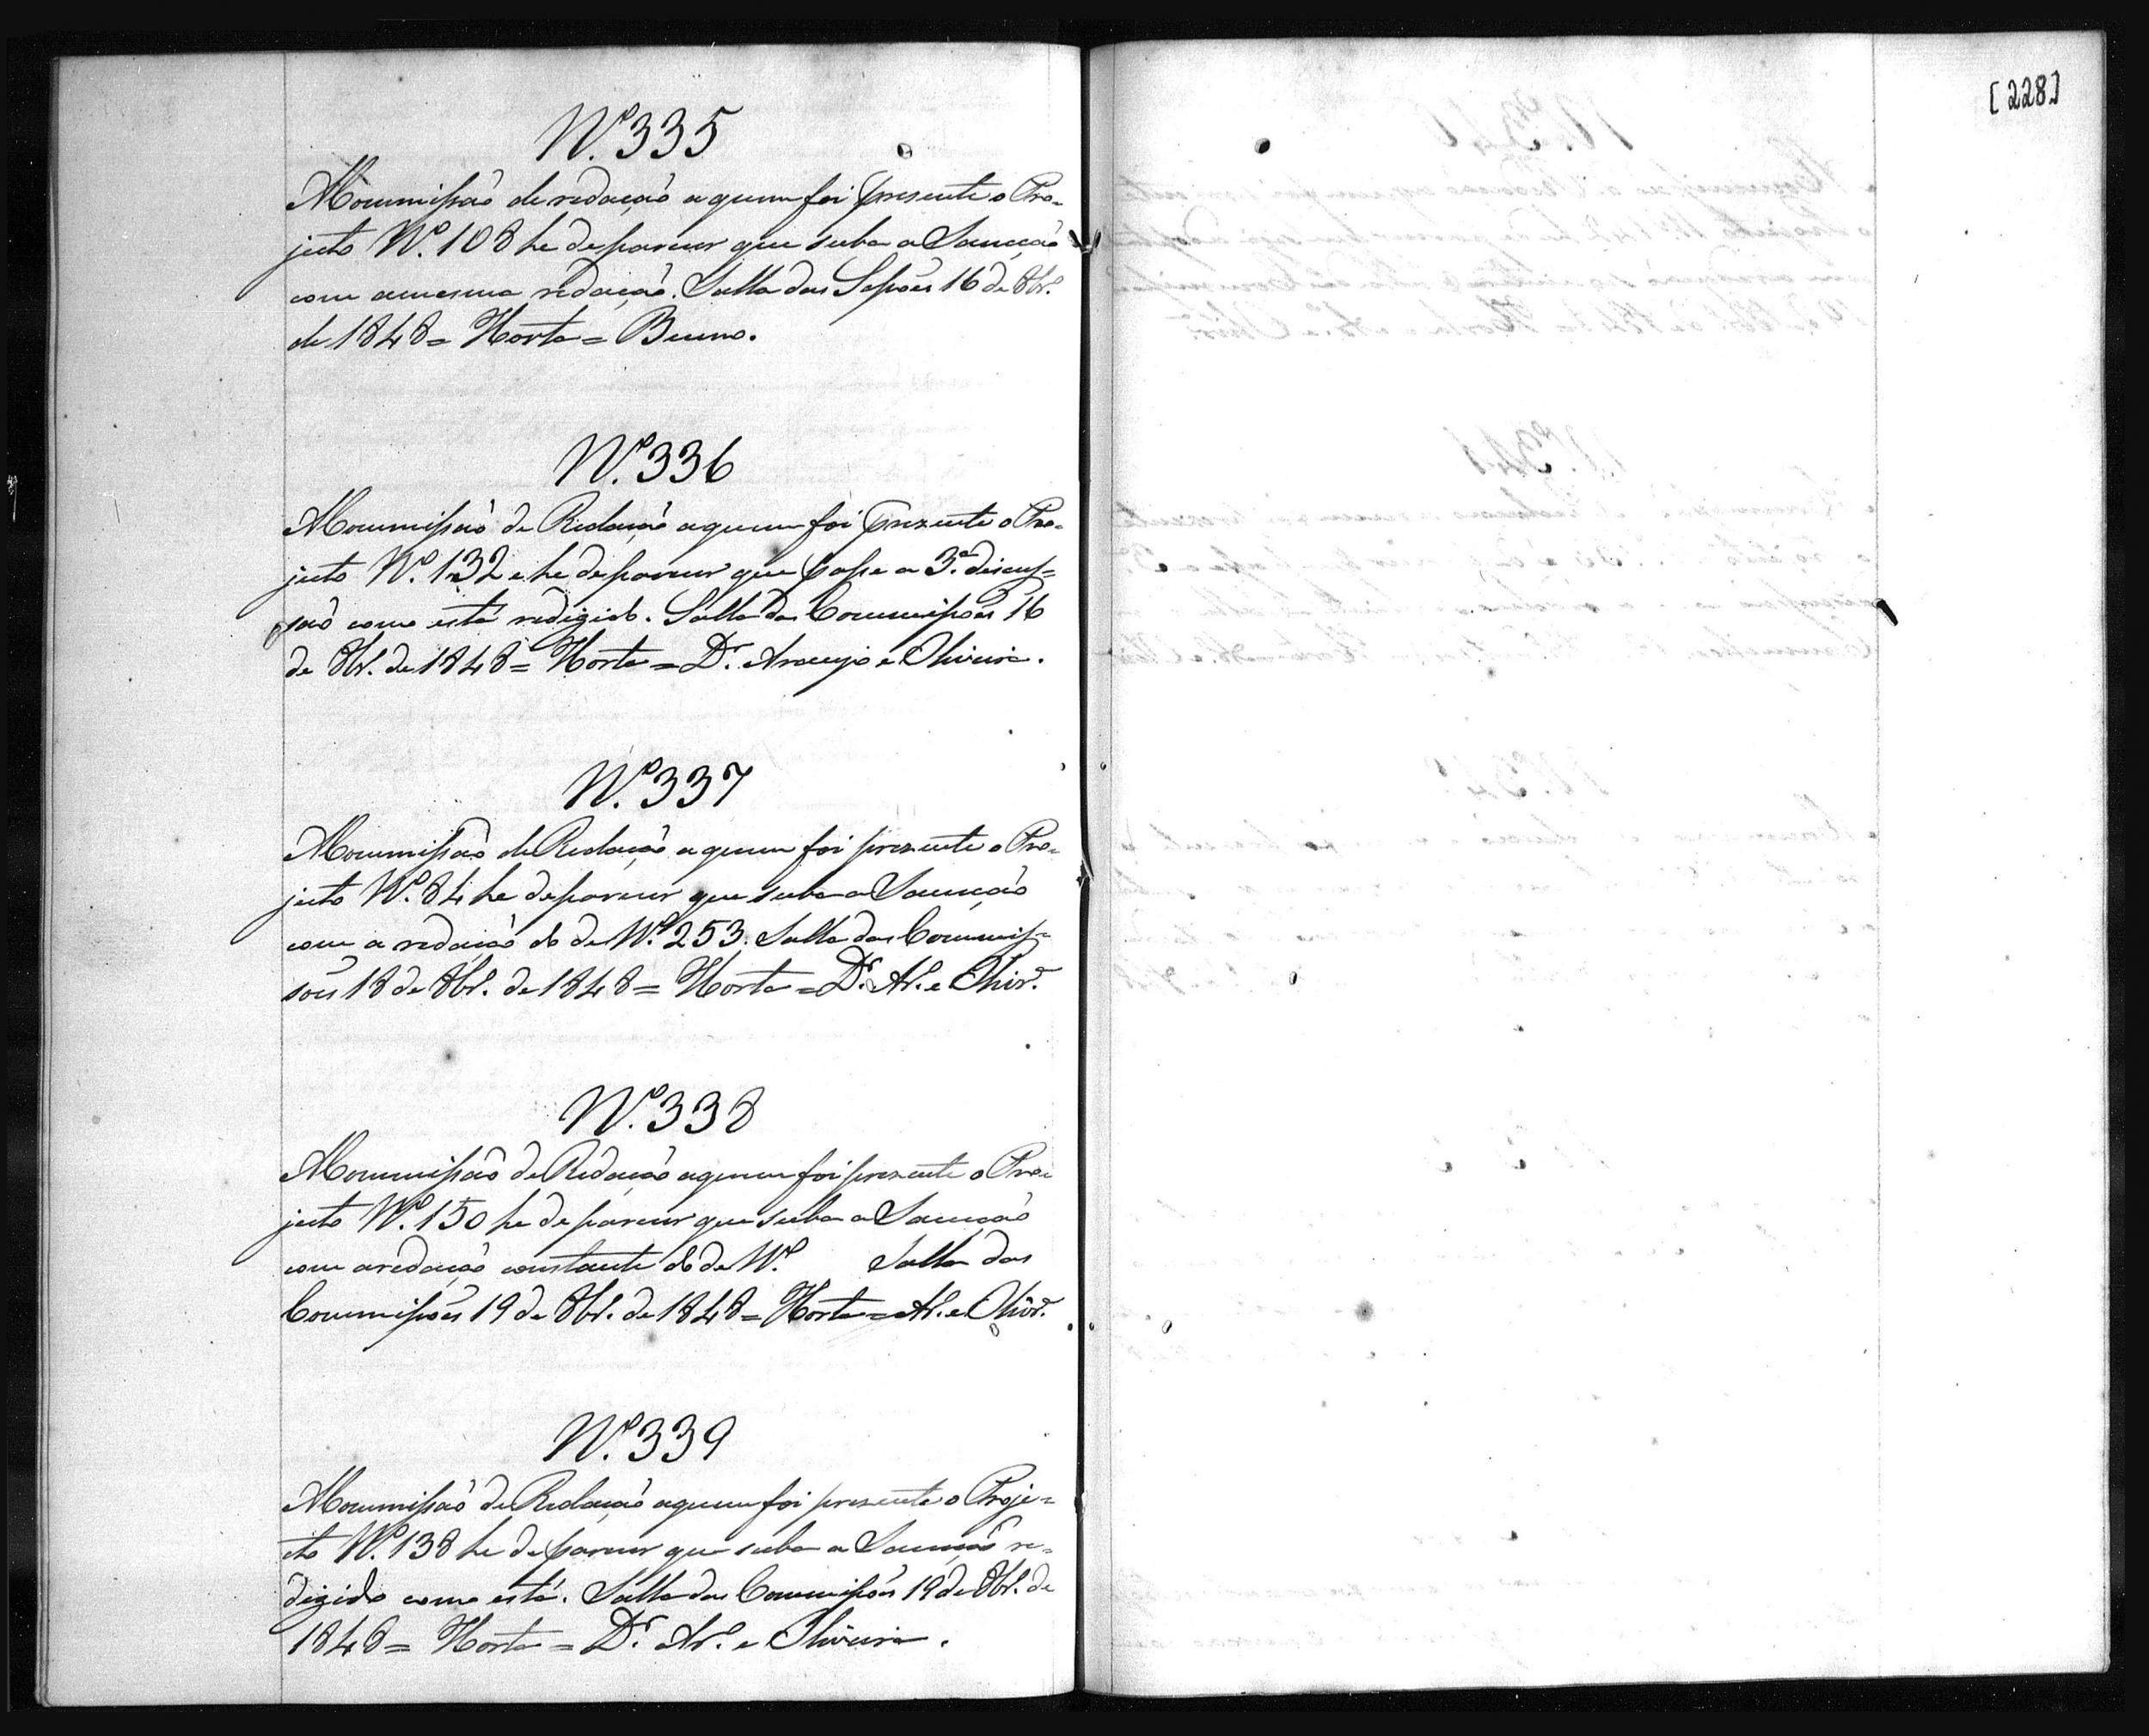 Nº. 335
A Commissão de redação a quem foi presente o Pro-
jecto Nº. 108 he de parecer que suba a Sancção
com a mesma redação. Salla das Sessões 16 de 8br.º
de 1848 = Horta = Bueno.
Nº. 336
A Commissão de Redação a quem foi prezente o Pro-
jecto Nº. 132 e he de parecer que passe a 3.ª discus-
são como está redigido. Salla das Commissões 16
de 8br.º de 1848 = Horta = Dr. Araujo e Oliveira.
Nº. 337
A Commissão de Redação a quem foi prezente o Pro-
jecto Nº. 84 he de parecer que suba a Sancção
com a redação do de Nº. 253. Salla das Commis-
sões 18 de 8br.º de 1848 = Horta = Dr. Ar.º e Olivr.ª
Nº. 338
A Commissão de Redação a quem foi prezente o Pro-
jecto Nº. 150 he de parecer que suba a Sancção
com a redação constante do de Nº. Salla das
Commissões 19 de 8br.º de 1848 = Horta = Ar.º e Olivr.ª
Nº. 339
A Commissão de Redação a quem foi prezente o Proje-
cto Nº. 138 he de parecer que suba a Sancção re-
digido como está. Salla das Commissões 19 de 8br.º de
1848 = Horta = Dr. Ar.º e Oliveira.
[228]